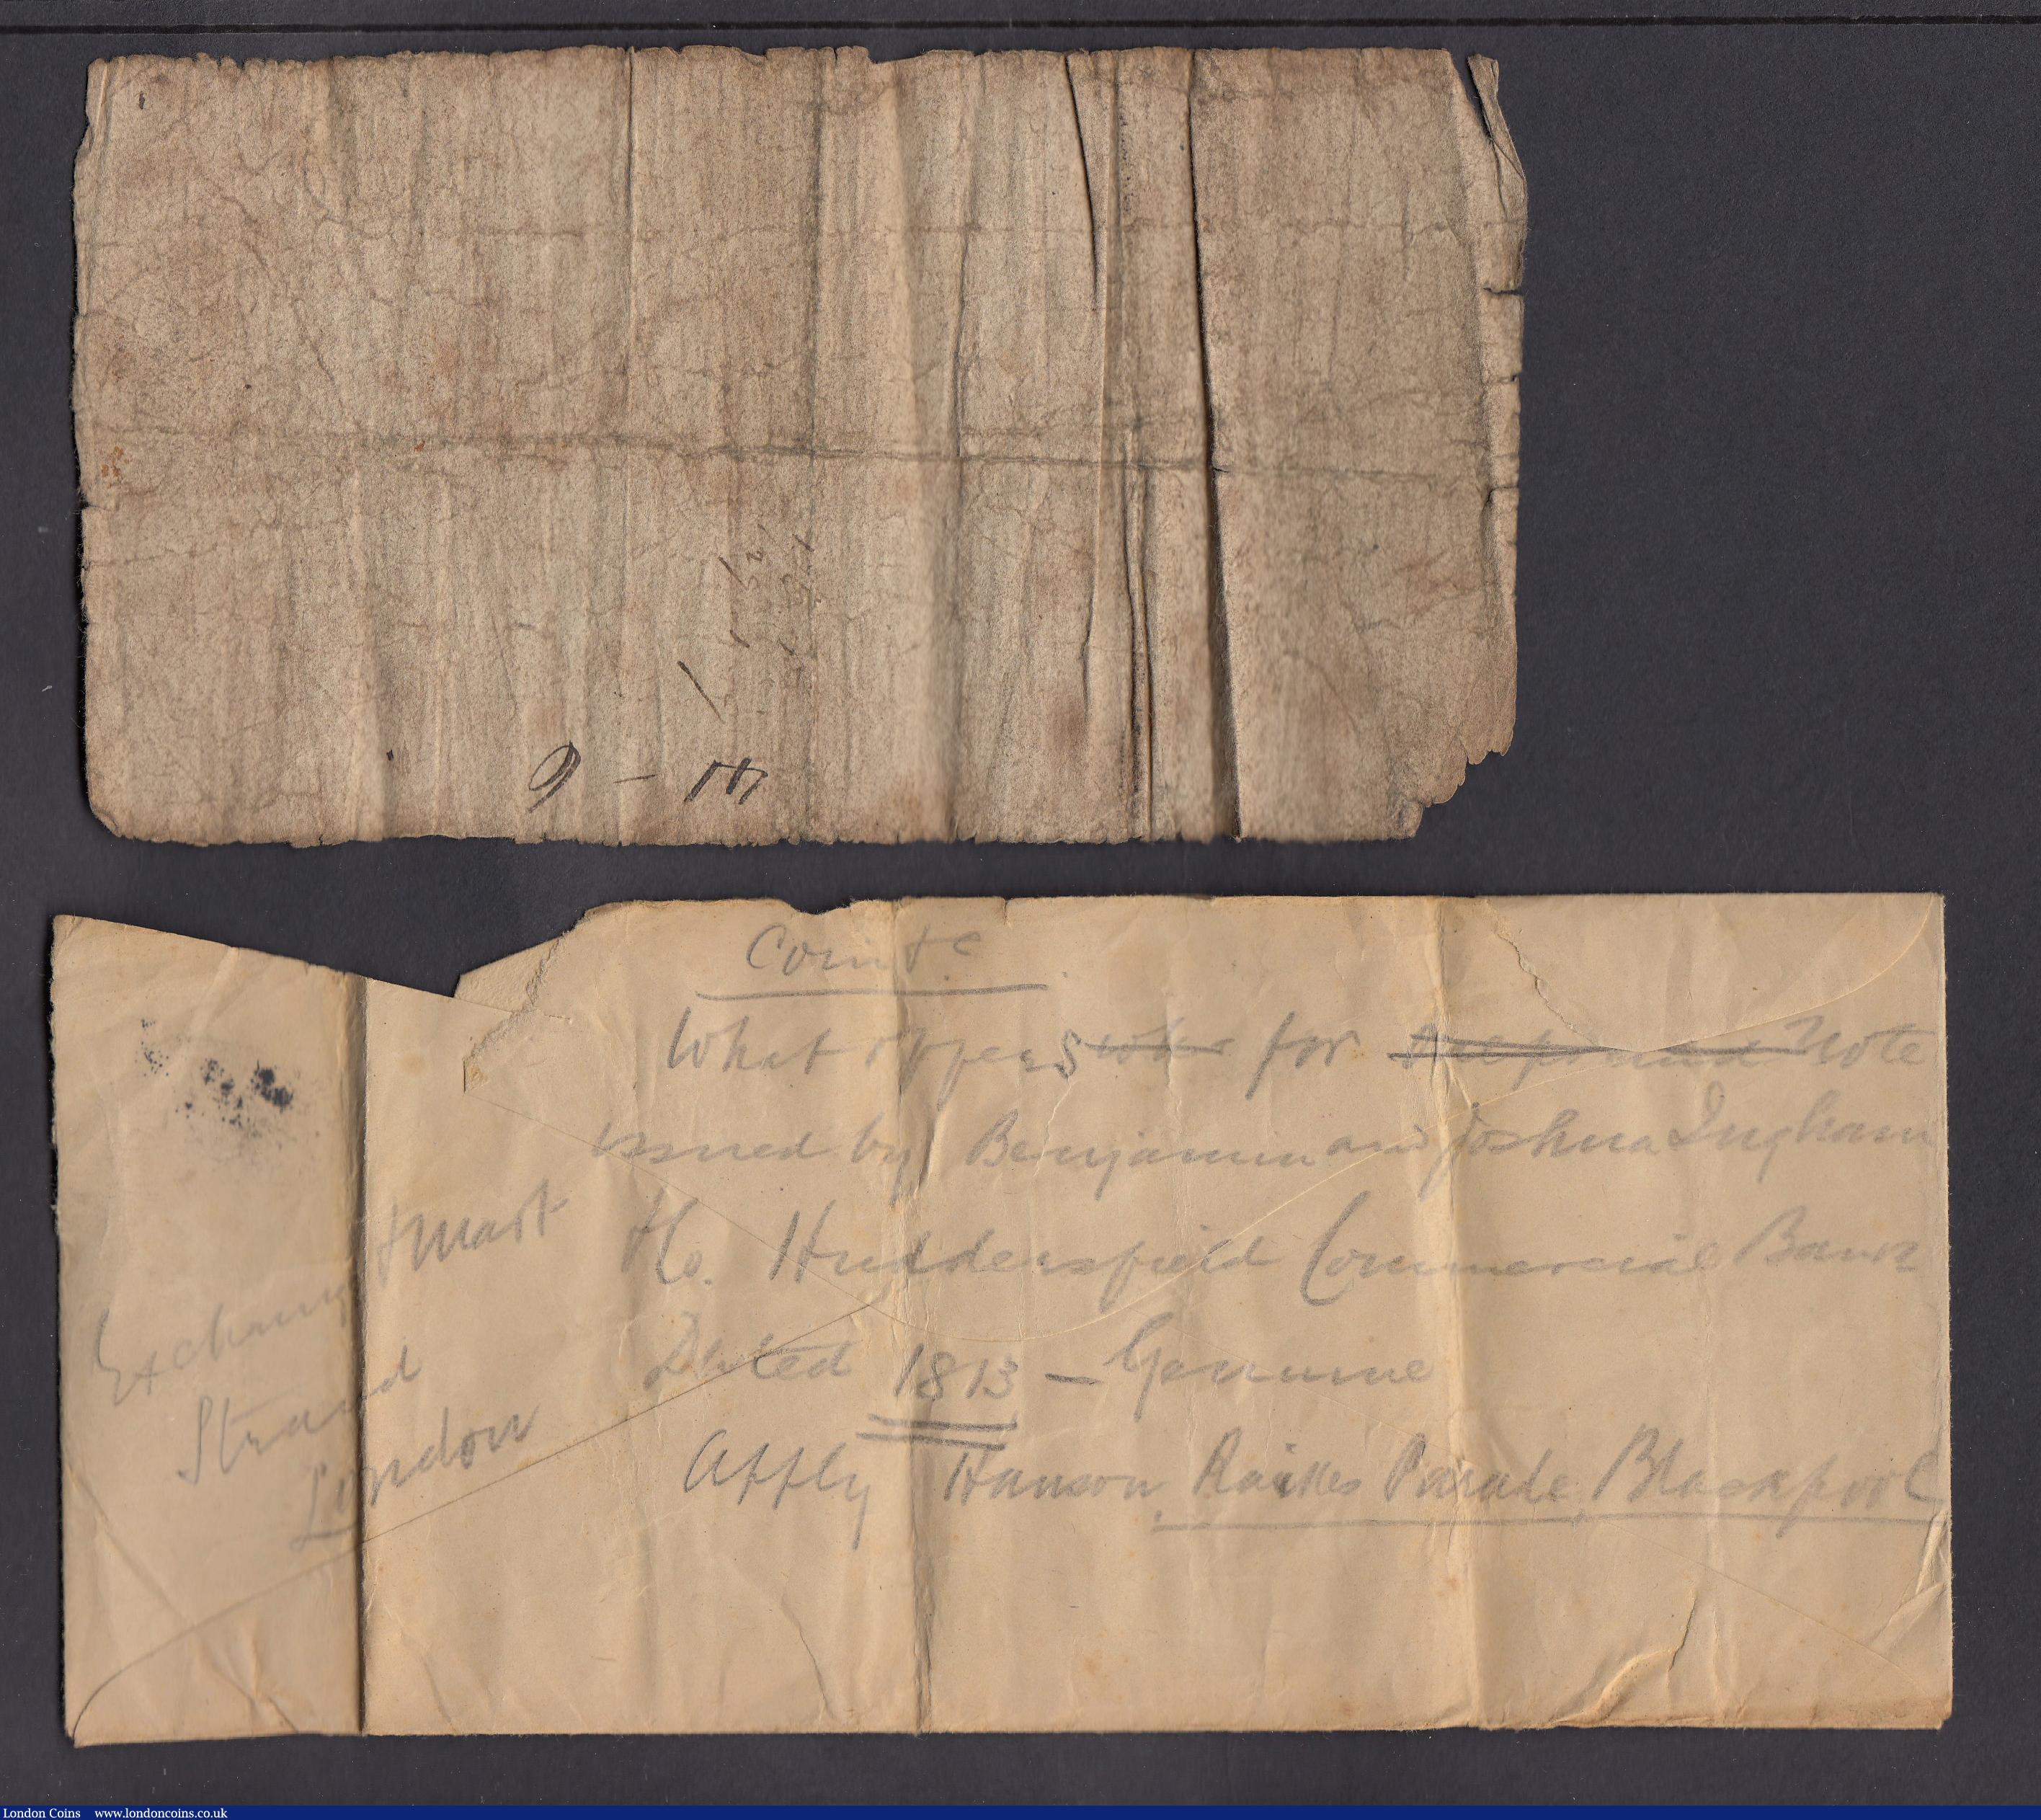 6 - 14
Coin &c
What offers for one pound Note
issued by Benjamin and Joshua Ingham
&Co. Huddersfield Commercial Bank
Dated 1813 - Genuine
Apply Hanson, Raikes Parade, Blackpool
Exchange & Mart
Strand
London
London Coins www.londoncoins.co.uk